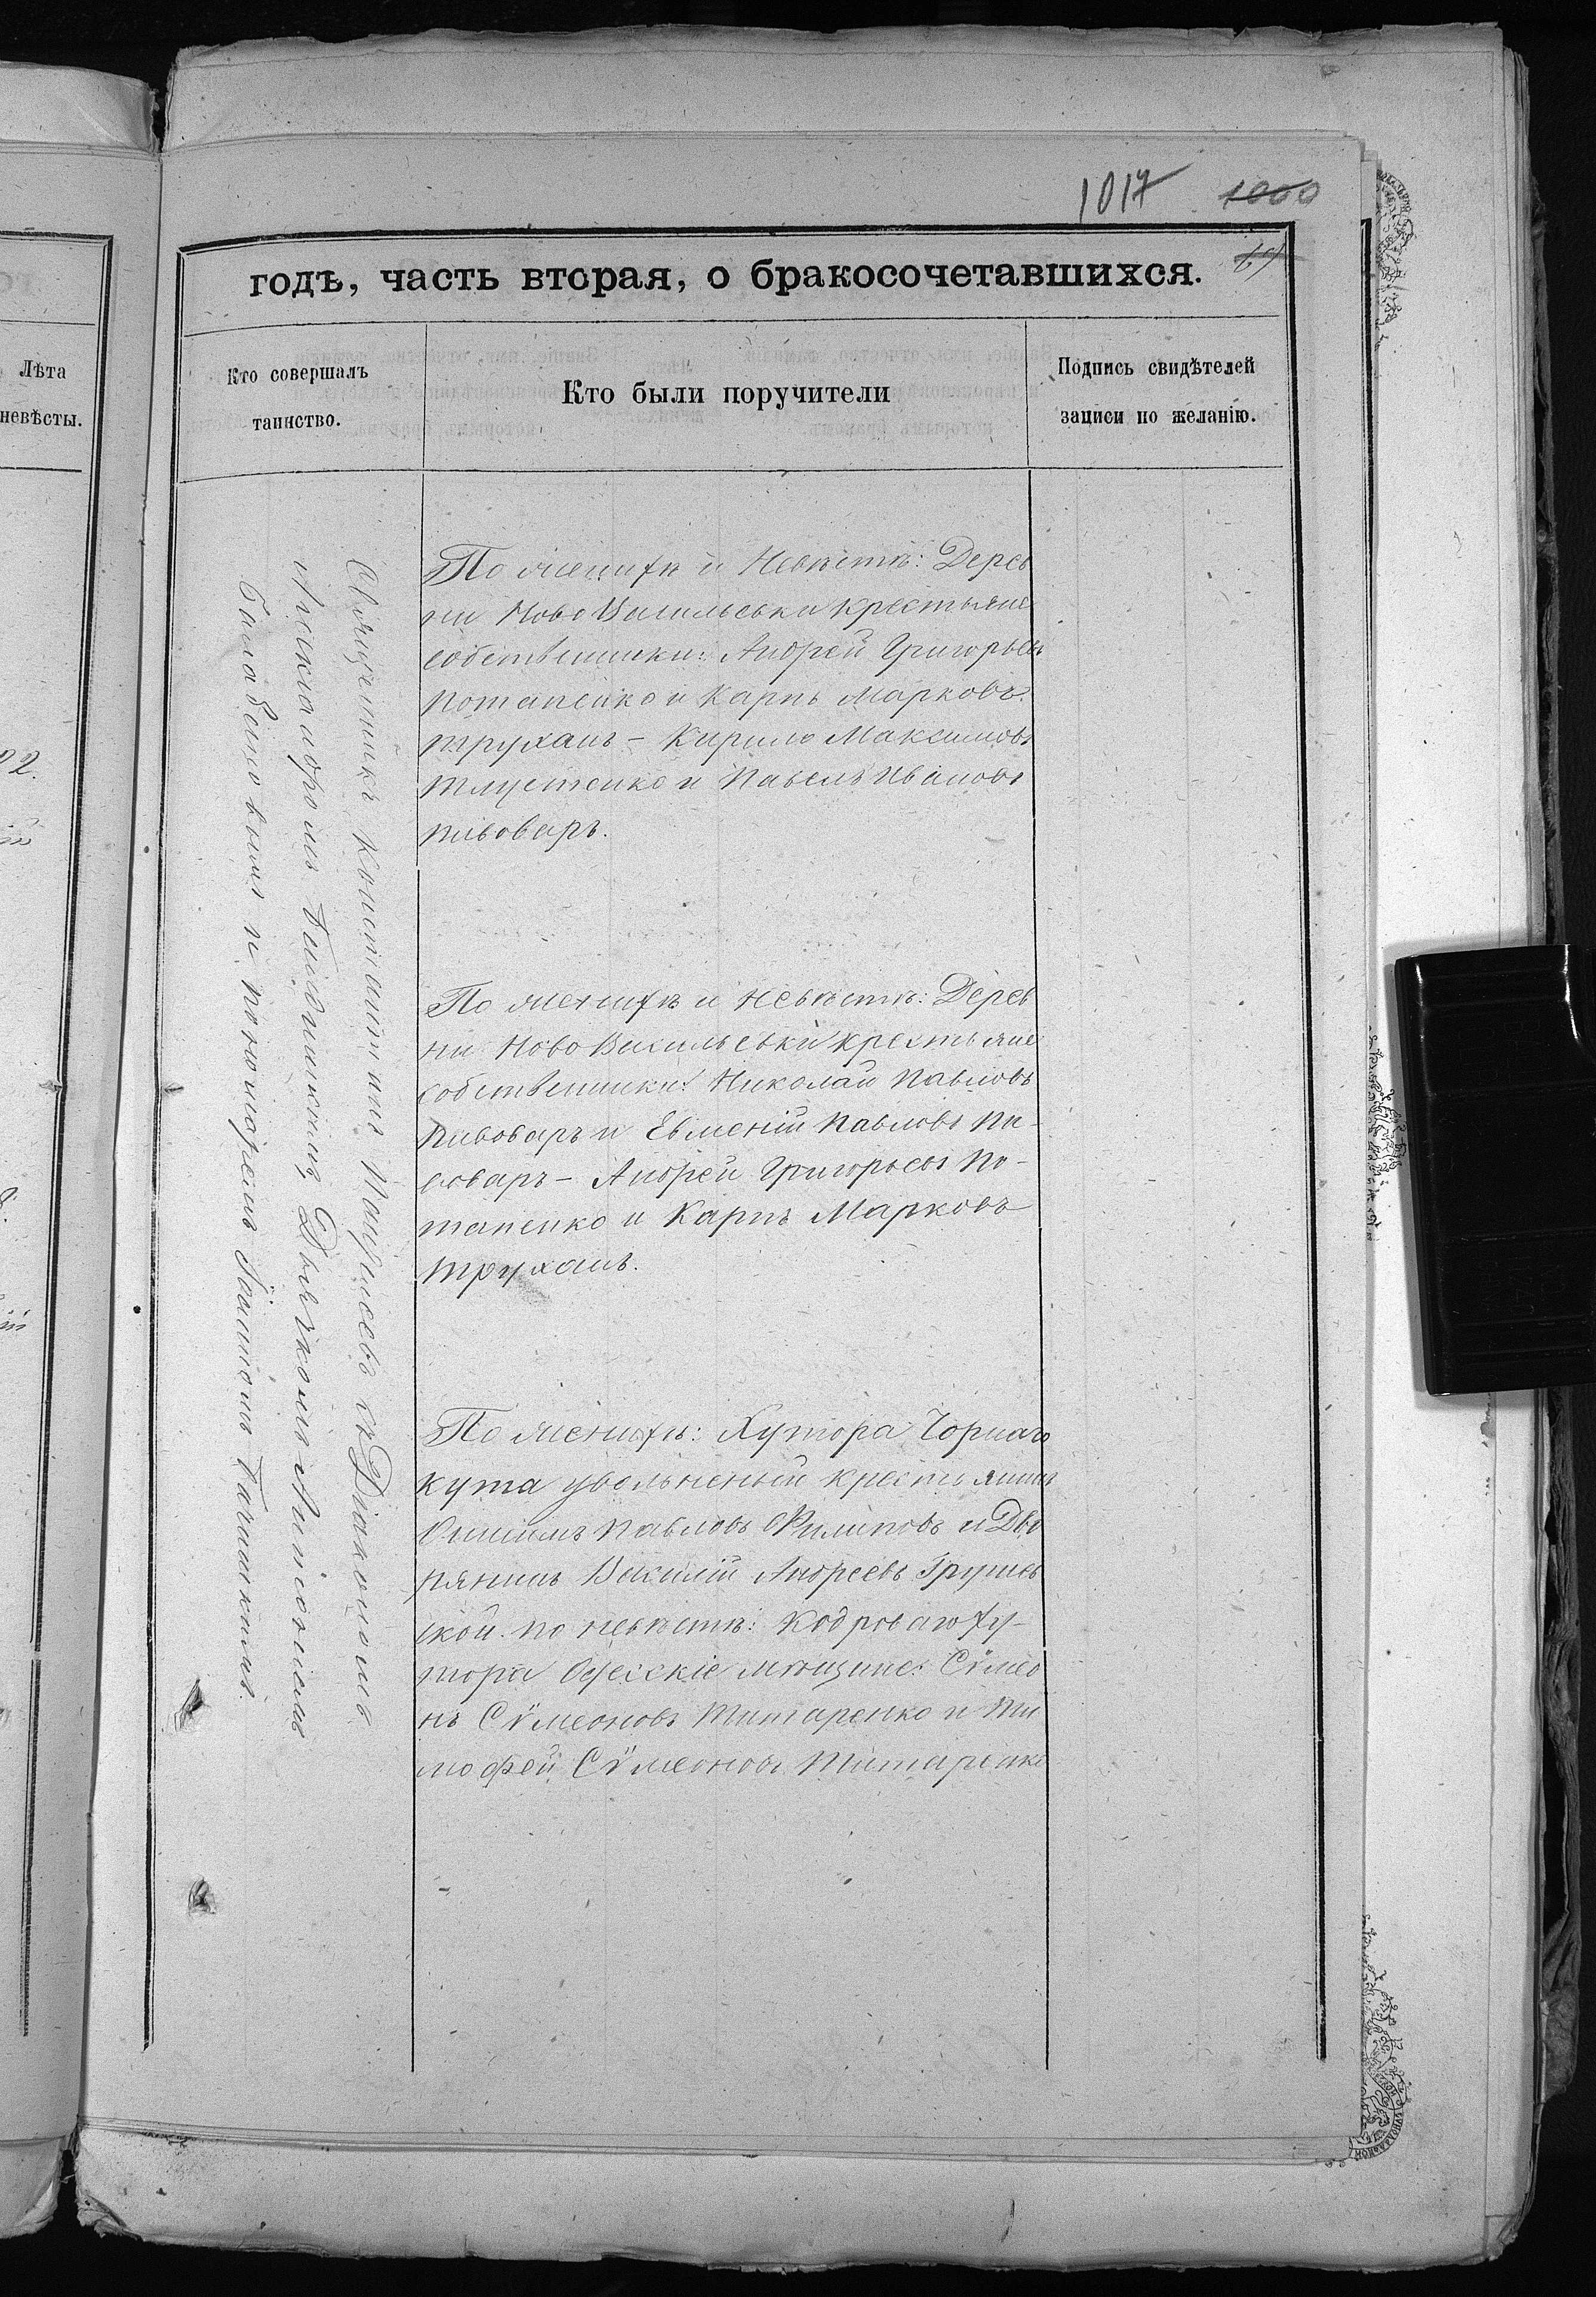 1017 1000
годъ, часть вторая, о бракосочетавшихся.
Лѣта
невѣсты.
Кто совершалъ
таинство.
Кто были поручители
Подпись свидѣтелей
записи по желанію.
Священникъ Константинъ съ Діакономъ
Дьячкомъ
и пономаремъ Іоанномъ
По женихѣ и Невѣстѣ: Дерев
ни Ново Васильевки крестьяне
собственники: Андрей Григорьевъ
Потапенко и Карпъ Марковъ
Труханъ – Кирило Максимовъ
Тлустенко и Павелъ Ивановъ
Пивоваръ.
По женихѣ и невѣстѣ: Дерев
ни Ново Васильевки крестьяне
собственники: Николай Павловъ
Пивоваръ и Евменій Павловъ Пи-
воваръ – Андрей Григорьевъ По-
тапенко и Карпъ Марковъ
Труханъ.
По женихѣ: Хутора Чорнаго
кута увольненый крестьянинъ
Онисимъ Павловъ Филиповъ и Дво
рянинъ Василій Андреевъ Грушев
ской. по невѣстѣ: Ху-
тора Одесскіе мѣщане: Сѵмео
нъ Сѵмеоновъ Титаренко и Ти
мофей Сѵмеоновъ Титаренко